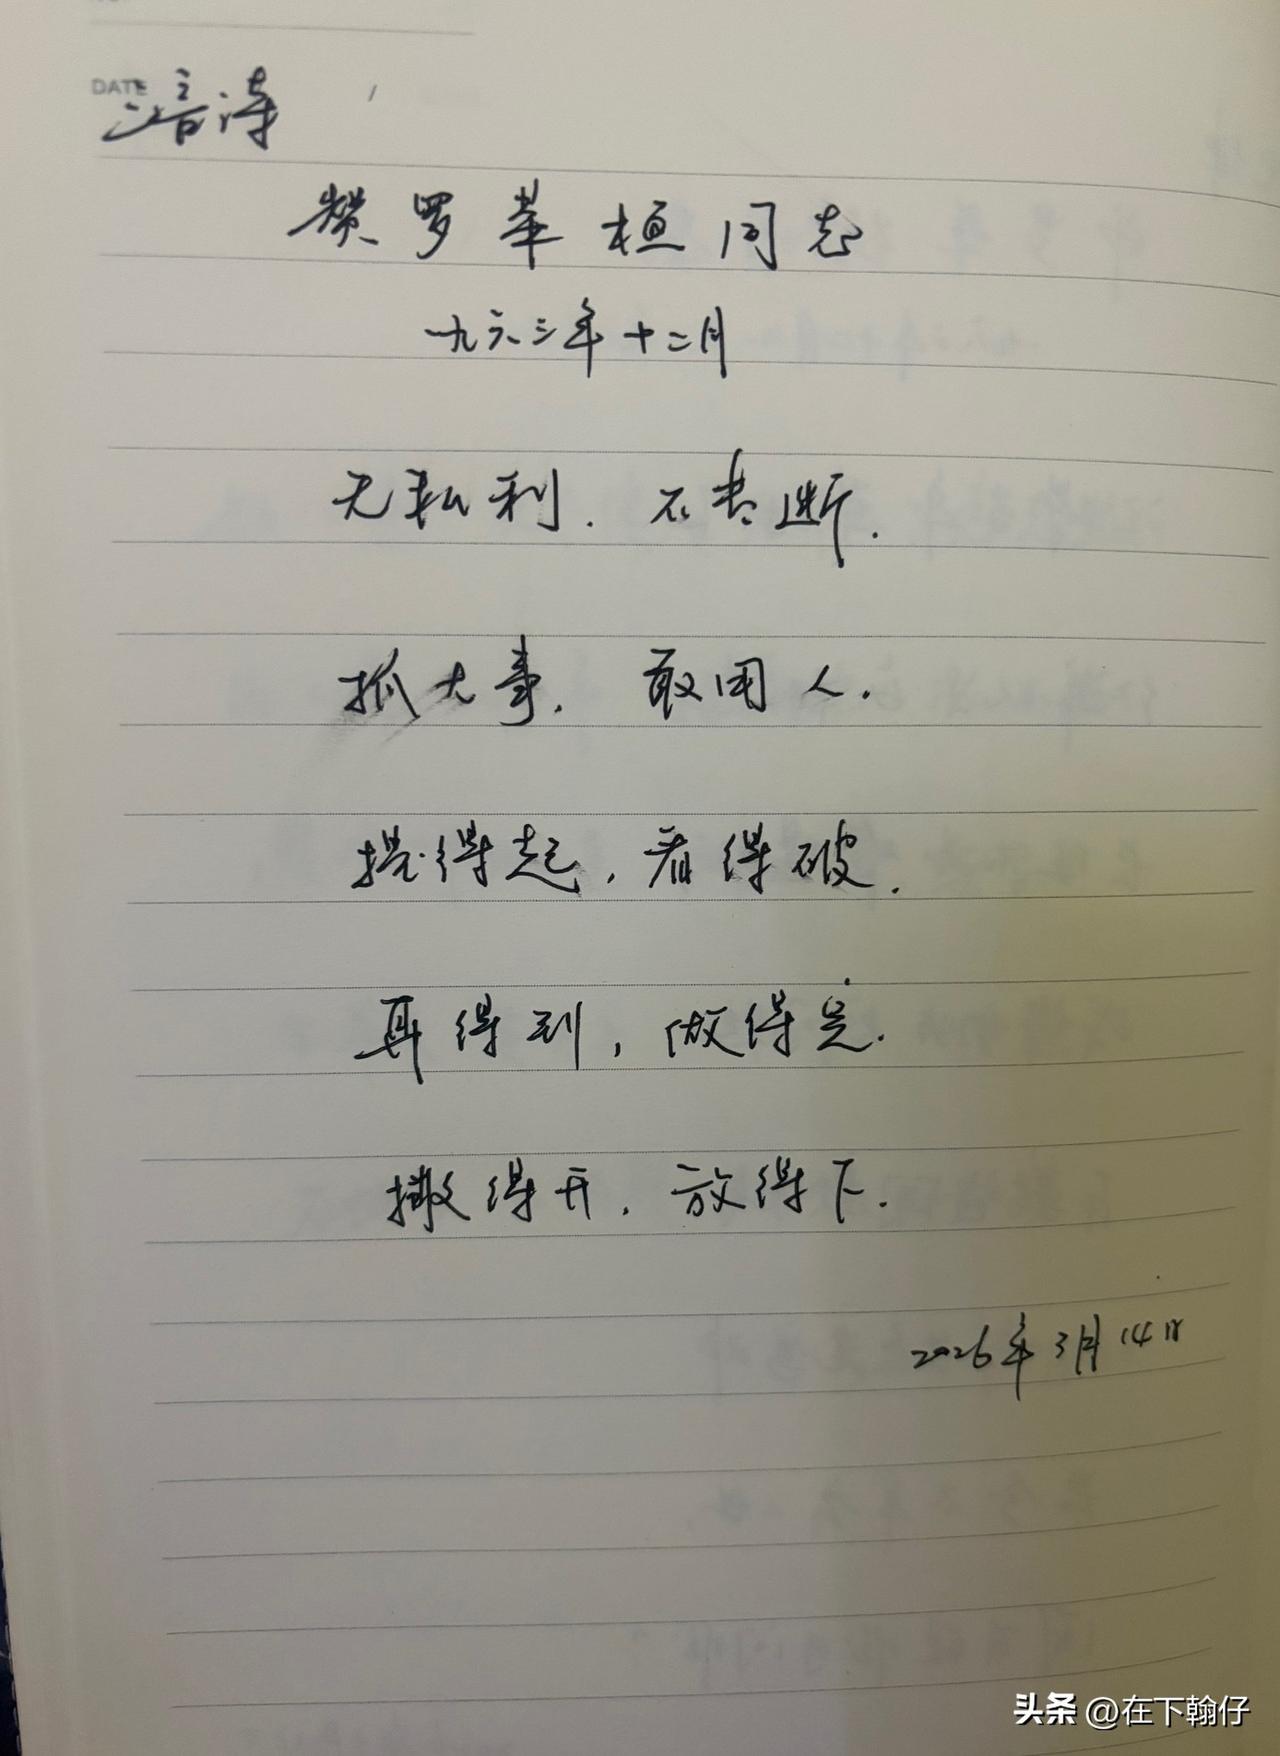 DATE
三言诗
赞罗荣桓同志
一九六三年十二月
无私利,不专断.
抓大事,敢用人.
提得起,看得破.
算得到,做得完.
撇得开,放得下.
2026年3月14日
头条 @在下翰仔